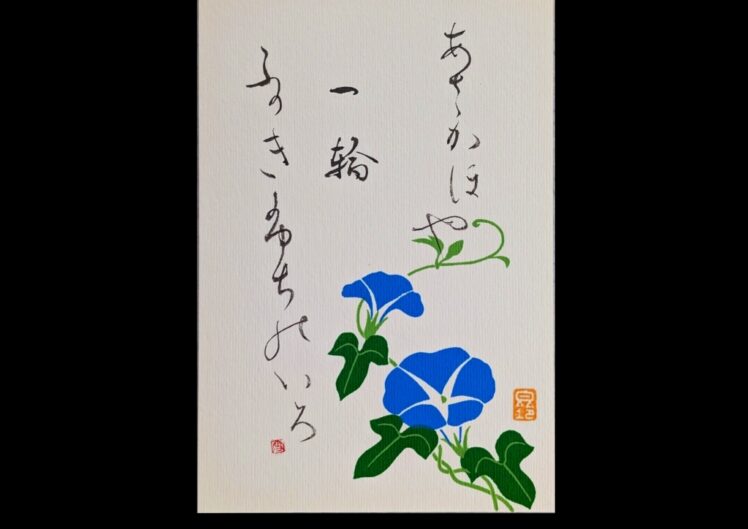 あさかほや
一輪
ふかきふちのいろ